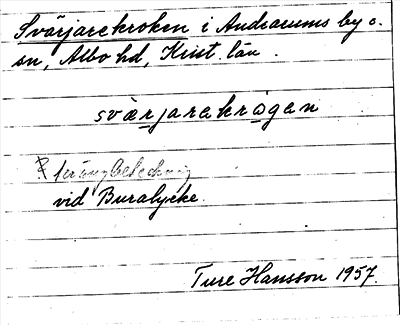 Svärjarekroken i Andrarums by o.
sn, Albo hd, Krist. län.
sværjarekrågen
vid Buralycke.
Ture Hansson 1957.